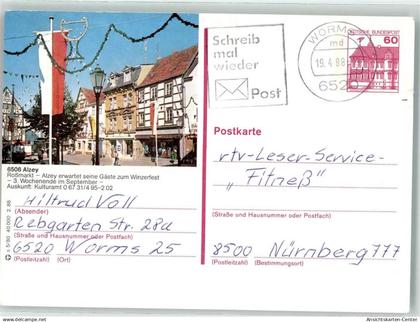 Schreib
mal
wieder
Post
WORMS
md
19.4.88
652
DEUTSCHE BUNDESPOST
60
Postkarte
6508 Alzey
Roßmarkt – Alzey erwartet seine Gäste zum Winzerfest
– 3. Wochenende im September –
Auskunft: Kulturamt 0 67 31/4 95-2 02
Hiltrud Voll
(Absender)
Rebgarten Str. 28a
(Straße und Hausnummer oder Postfach)
6520 Worms 25
(Postleitzahl) (Ort)
rtv-Leser-Service-
„Fitneß"
(Straße und Hausnummer oder Postfach)
8500 Nürnberg 777
(Postleitzahl) (Bestimmungsort)
s 5/80 40 000 2.88
Ansichtskarten-Center